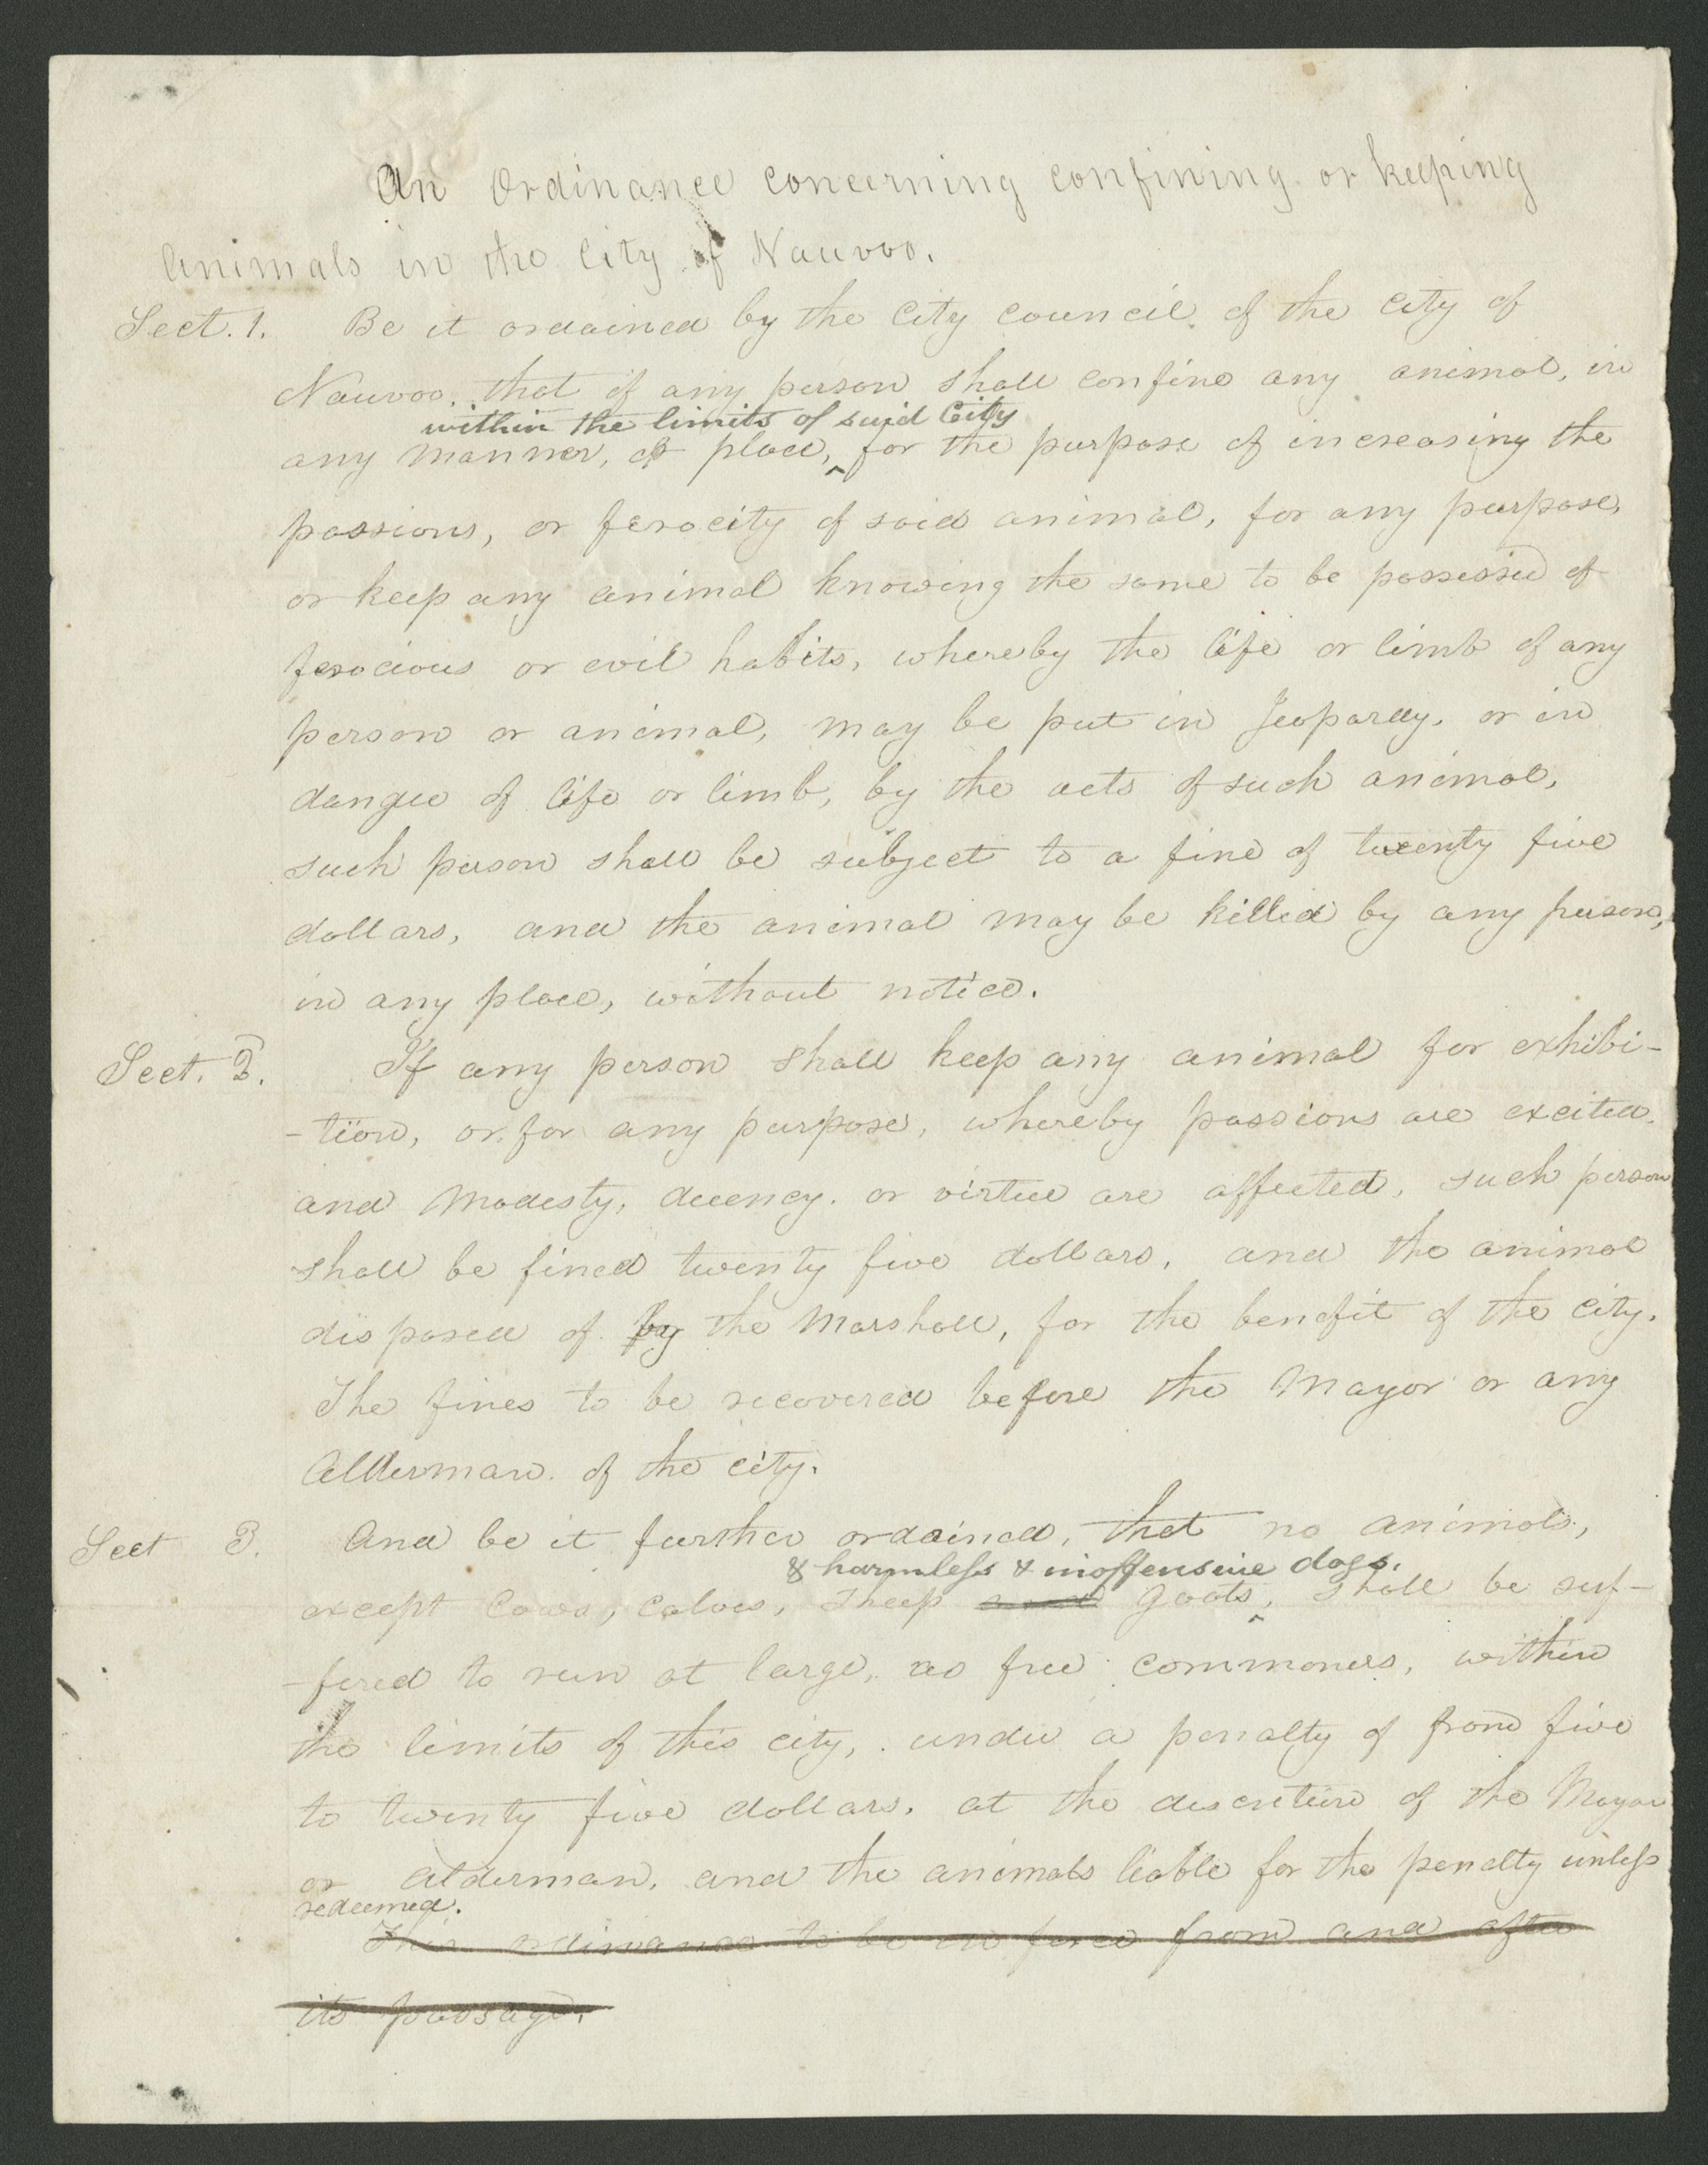 An Ordinance concerning confining or keeping
Animals in the City of Nauvoo.
Sect. 1. Be it ordained by the City Council of the City of
Nauvoo, that if any person shall confine any animal, in
within the limits of said City
any manner, or place, ‸ for the purpose of increasing the
passions, or ferocity of said animal, for any purpose,
or keep any animal knowing the same to be possessed of
ferocious or evil habits, whereby the life or limb of any
person or animal, may be put in Jeopardy, or in
danger of life or limb, by the acts of such animal,
such person shall be subject to a fine of twenty five
dollars, and the animal may be killed by any person,
in any place, without notice.
Sect. 2. If any person shall keep any animal for exhibi-
-tion, or for any purpose, whereby passions are excited,
and Modesty, decency, or virtue are affected, such person
shall be fined twenty five dollars, and the animal
disposed of by the Marshall, for the benefit of the City.
The fines to be recovered before the Mayor or any
Alderman of the city.
Sect 3. And be it further ordained, that no animals,
& harmless & inoffensive dogs.
except Cows, calves, Sheep and Goats, ‸ shall be suf-
-fered to run at large, as free commoners, within
the limits of this city, under a penalty of from five
to twenty five dollars, at the discretion of the Mayor
or alderman, and the animals liable for the penalty unless
redeemed.
This ordinance to be in force from and after
its passage.